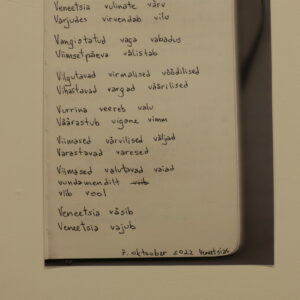 Veneetsia vulinate värv
Varjudes virvendab vilu
Vangistatud vaga vabadus
Viimsetpäeva välistab
Vilgutavad virmalised võõdilised
Vihastavad vargad väärilised
Vurrina veereb valu
Väärastub vigane vimm
Viimased värvilised väljad
Varastavad varesed
Viimased valutavad vaiad
vundamendilt
viib vool
Veneetsia väsib
Veneetsia vajub
7. oktoober 2022 Veneetsias